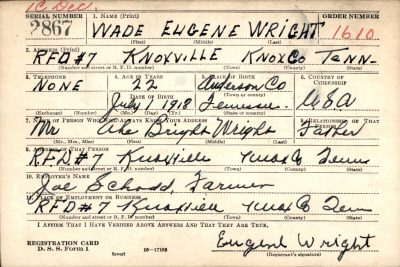 1C Dec.
SERIAL NUMBER 1. NAME (Print) ORDER NUMBER
2867 WADE EUGENE WRIGHT 1610
(First) (Middle) (Last)
2. ADDRESS (Print)
RFD#7 KNOXVILLE KNOX CO TENN.
(Number and street or R. F. D. number) (Town) (County) (State)
3. TELEPHONE 4. AGE IN YEARS 5. PLACE OF BIRTH 6. COUNTRY OF CITIZENSHIP
NONE 22 Anderson Co
DATE OF BIRTH (Town or county)
July 1918 USA
(Exchange) (Number) (Mo.) (Day) (Yr.) (State or country)
7. NAME OF PERSON WHO WILL ALWAYS KNOW YOUR ADDRESS 8. RELATIONSHIP OF THAT PERSON
Mr Abe Bright Wright Father
(Mr., Mrs., Miss) (First) (Middle) (Last)
9. ADDRESS OF THAT PERSON
RFD#7 Knoxville Knox Co Tenn
(Number and street or R. F. D. number) (Town) (County) (State)
10. EMPLOYER'S NAME
Joe Schaad, Farmer
11. PLACE OF EMPLOYMENT OR BUSINESS
RFD#7 Knoxville Knox Co Tenn
(Number and street or R. F. D. number) (Town) (County) (State)
I AFFIRM THAT I HAVE VERIFIED ABOVE ANSWERS AND THAT THEY ARE TRUE.
Eugene Wright
REGISTRATION CARD
D. S. S. Form 1 (over) 16—17105 (Registrant's signature)